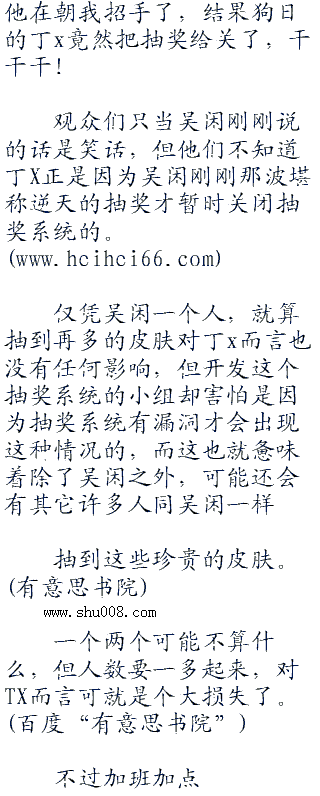 他在朝我招手了，结果狗日
的丁x竟然把抽奖给关了，干
干干！
观众们只当吴闲刚刚说
的话是笑话，但他们不知道
丁X正是因为吴闲刚刚那波堪
称逆天的抽奖才暂时关闭抽
奖系统的。
(www.hcihci66.com)
仅凭吴闲一个人，就算
抽到再多的皮肤对丁x而言也
没有任何影响，但开发这个
抽奖系统的小组却害怕是因
为抽奖系统有漏洞才会出现
这种情况的，而这也就意味
着除了吴闲之外，可能还会
有其它许多人同吴闲一样
抽到这些珍贵的皮肤。
(有意思书院)
www.shu008.com
一个两个可能不算什
么，但人数要一多起来，对
TX而言可就是个大损失了。
(百度“有意思书院”)
不过加班加点